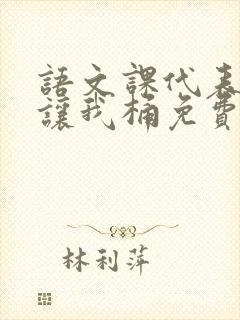 語文課代表
讓我桶免費
林利萍